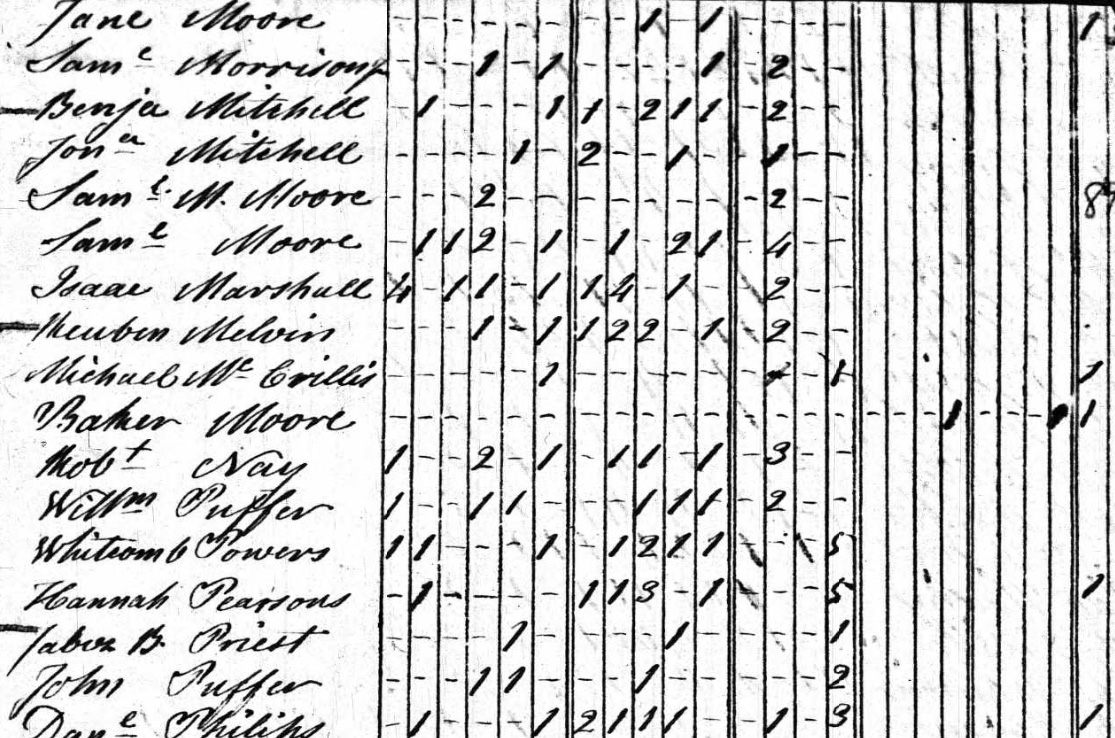 Jane Moore - - - - - - - - 1 - 1 - - - - 1
Sam^l Morrison - - - 1 - 1 - - - - 1 - 2 - -
Benja Mitchell - 1 - - - 1 1 - 2 1 1 - 2 - -
Jon^a Mitchell - - - - 1 - 2 - - 1 - - 1 - -
Sam^l M. Moore - - - 2 - - - - - - - - 2 - -
Sam^l Moore - 1 1 2 - 1 - 1 - 2 1 - 4 - -
Isaac Marshall 4 - 1 1 - 1 1 4 - 1 - - 2 - -
Reuben Melvin - - - 1 - 1 1 2 2 - 1 - 2 - -
Michael M^c Crillis - - - - - 1 - - - - - - - - 1 1
Baker Moore - - - - - - - - - - - - - - - - - - 1 - - - 1 1
Rob^t Nay 1 - - 2 - 1 - 1 1 - 1 - 3 - -
Will^m Puffer 1 - - 1 1 - - - 1 1 1 - 2 - -
Whitcomb Powers 1 1 - - - 1 - 1 2 1 1 - - - 5
Hannah Pearsons - 1 - - - - 1 1 3 - 1 - - - 5 1
Jabez B. Priest - - - - 1 - - - - 1 - - - - 1
John Puffer - - - 1 1 - - - 1 - - - - - 2
Dan^l Philips - 1 - - - 1 2 1 1 1 - - 1 - 3 1